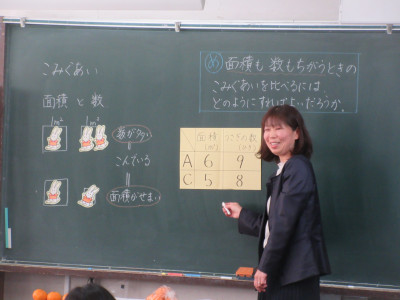 こみぐあい
面積 と 数
1m² 1m²
数が多い
＝
こんでいる
＝
面積がせまい
め 面積も 数もちがうときの
こみぐあいを比べるには
どのようにすればよいだろうか。
面積 うさぎの数
(m²) (ひき)
A 6 9
C 5 8